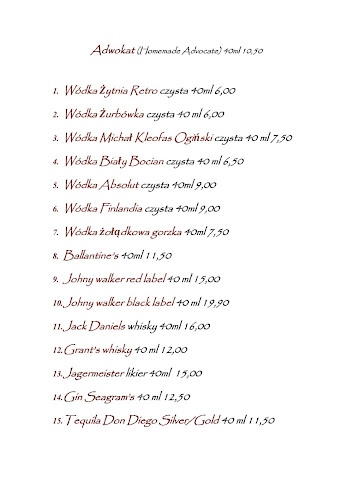 Adwokat (Homemade Advocate) 40ml 10,50
1. Wódka Żytnia Retro czysta 40ml 6,00
2. Wódka Żurbówka czysta 40 ml 6,00
3. Wódka Michał Kleofas Ogiński czysta 40 ml 7,50
4. Wódka Biały Bocian czysta 40 ml 6,50
5. Wódka Absolut czysta 40ml 9,00
6. Wódka Finlandia czysta 40ml 9,00
7. Wódka żołądkowa gorzka 40ml 7,50
8. Ballantine's 40ml 11,50
9. Johny walker red label 40 ml 15,00
10. Johny walker black label 40 ml 19,90
11. Jack Daniels whisky 40ml 16,00
12. Grant's whisky 40 ml 12,00
13. Jagermeister likier 40ml 15,00
14. Gin Seagram's 40 ml 12,50
15. Tequila Don Diego Silver/Gold 40 ml 11,50